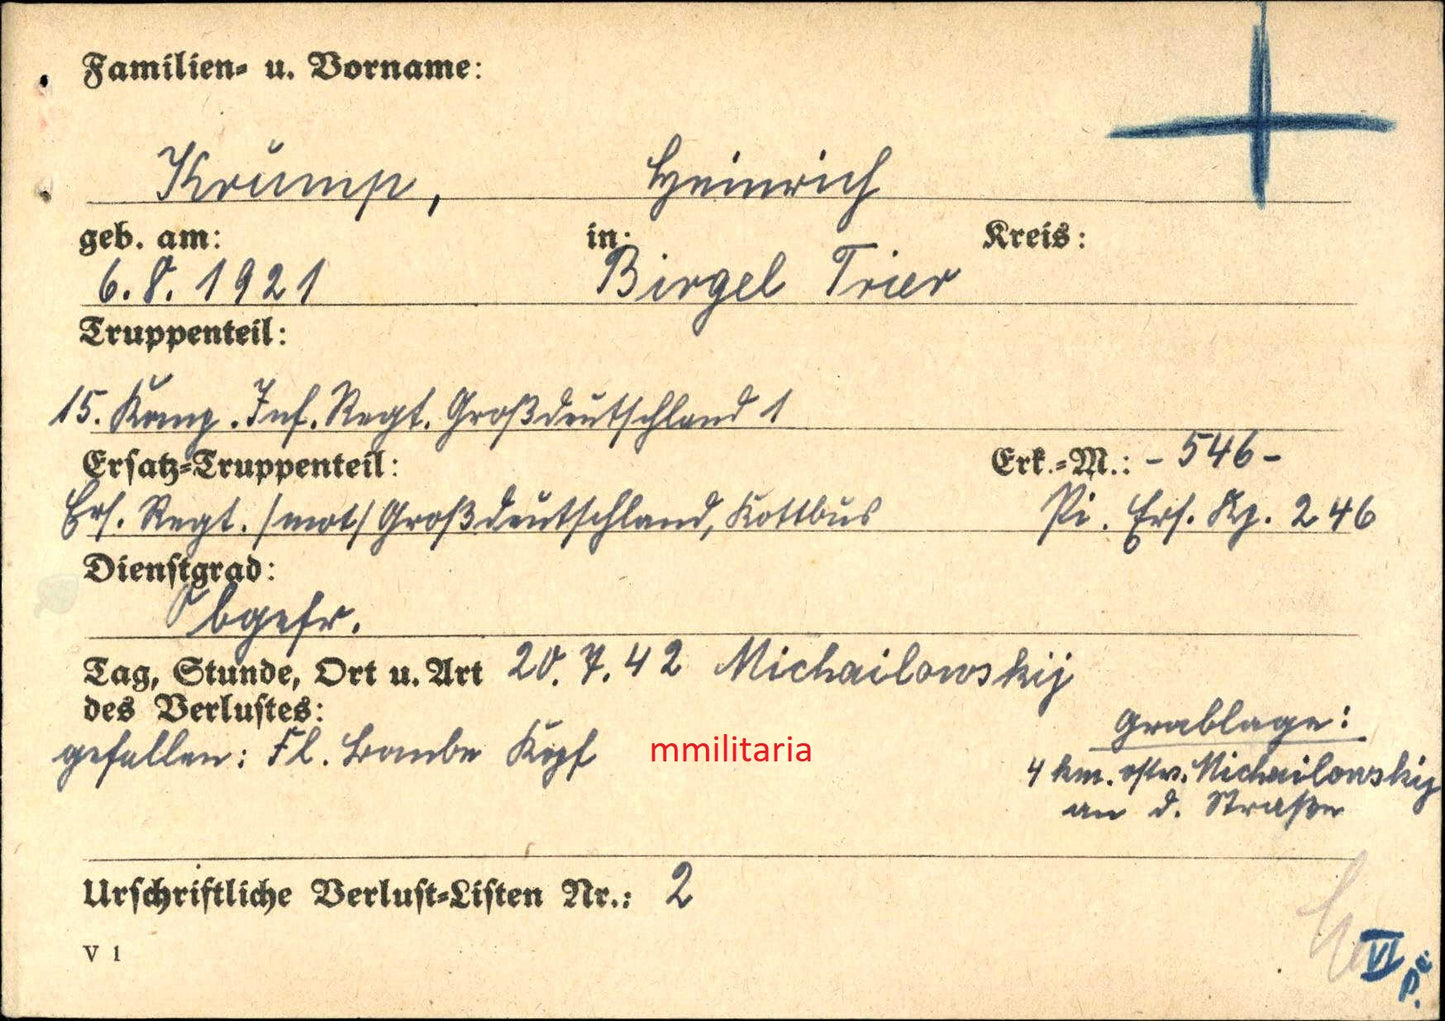 Familien- u. Vorname:
Krump, Heinrich
geb. am: in: Kreis:
6.8.1921 Birgel Trier
Truppenteil:
15. Komp. Inf. Regt. Großdeutschland 1
Ersatz-Truppenteil: Erk.-M.: - 546 -
Ers. Regt. /mot/ Großdeutschland, Kottbus Pi. Ers. Kp. 246
Dienstgrad:
Obgefr.
Tag, Stunde, Ort u. Art 20.7.42 Michailowskij
des Verlustes:
Grablage:
gefallen: Fl. Bombe Kopf
mmilitaria
4 km. ostw. Michailowskij
an d. Straße
Urschriftliche Verlust-Listen Nr.: 2
V 1
VI